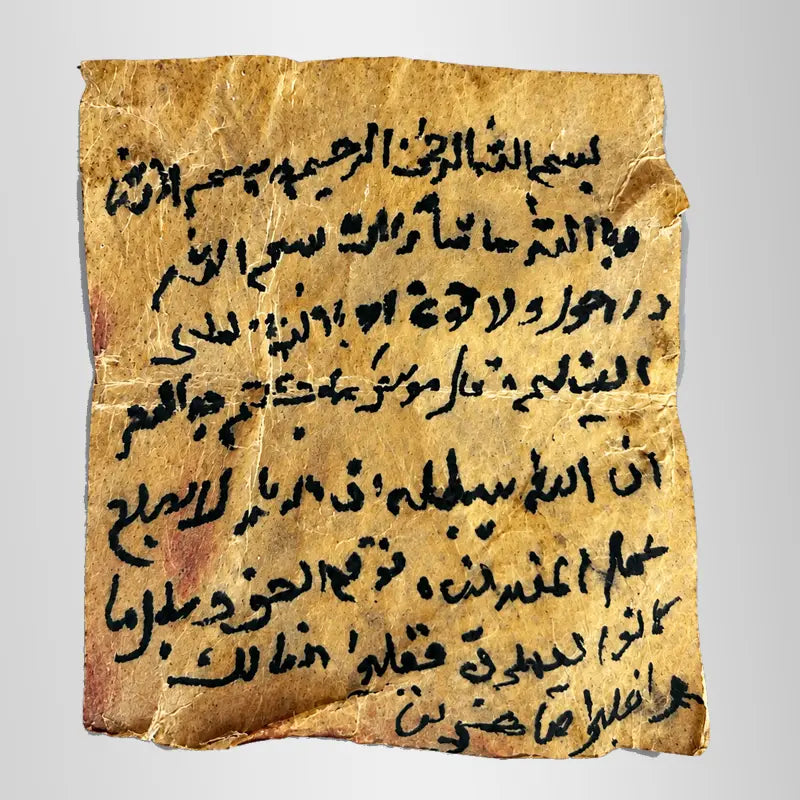 بسم الله الرحمن الرحيم بسم الله
وبالله ما شاء الله بسم الله
لا حول ولا قوة الا بالله العلى
العظيم قال موسى ما جئتم به السحر
ان الله سيبطله ان الله لا يصلح
عمل المفسدين فوقع الحق وبطل ما
كانوا يعملون فغلبوا هنالك
وانقلبوا صاغرين